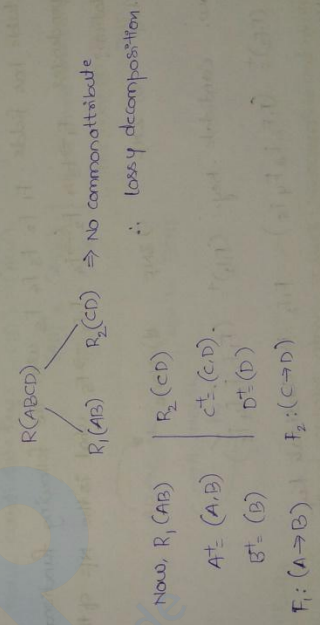 R(ABCD)
R₁(AB) R₂(CD) ⇒ No common attribute
∴ lossy decomposition
Now, R₁(AB) | R₂(CD)
A⁺= (A,B) | C⁺= (C,D).
B⁺= (B) | D⁺= (D)
F₁: (A→B) F₂: (C→D)